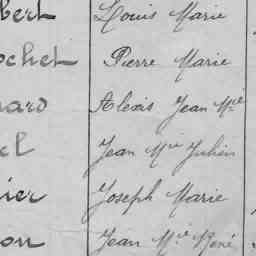 bert Louis Marie
ochet Pierre Marie
nard Alexis Jean Mie
el Jean Mie Julien
nier Joseph Marie
on Jean Mie René